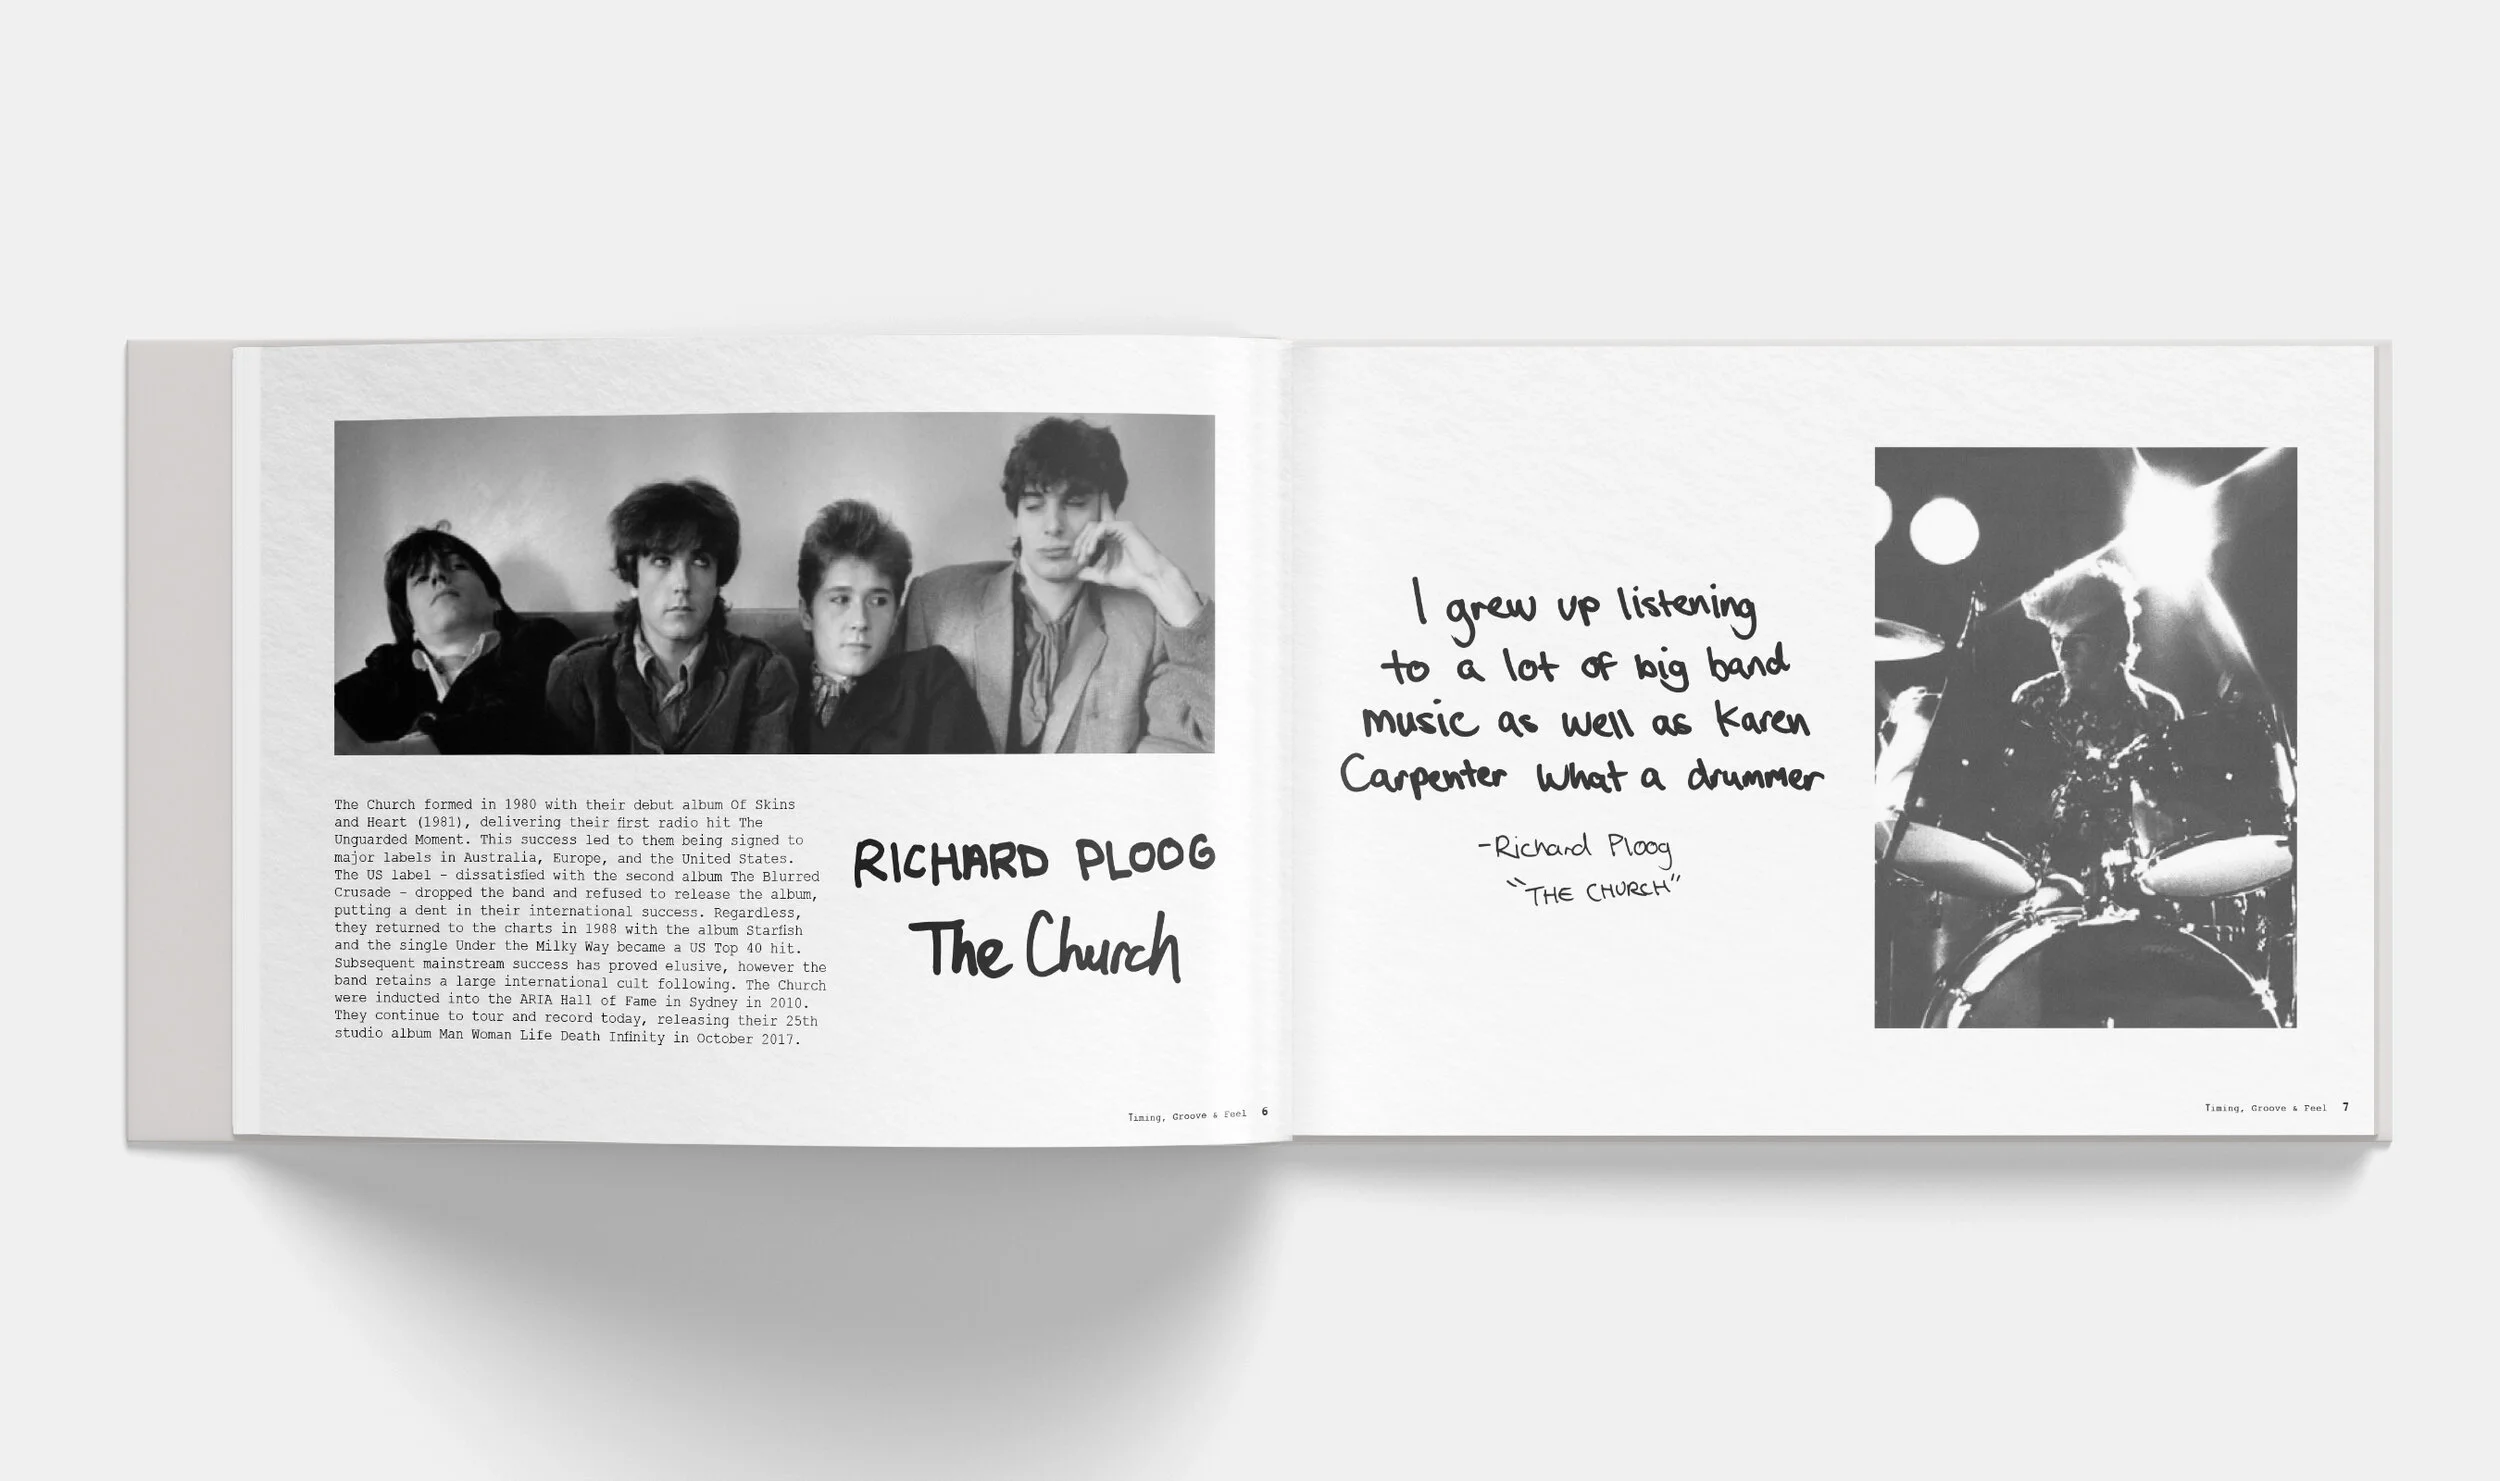 The Church formed in 1980 with their debut album Of Skins
and Heart (1981), delivering their first radio hit The
Unguarded Moment. This success led to them being signed to
major labels in Australia, Europe, and the United States.
The US label – dissatisfied with the second album The Blurred
Crusade – dropped the band and refused to release the album,
putting a dent in their international success. Regardless,
they returned to the charts in 1988 with the album Starfish
and the single Under the Milky Way became a US Top 40 hit.
Subsequent mainstream success has proved elusive, however the
band retains a large international cult following. The Church
were inducted into the ARIA Hall of Fame in Sydney in 2010.
They continue to tour and record today, releasing their 25th
studio album Man Woman Life Death Infinity in October 2017.
RICHARD PLOOG
The Church
Timing, Groove & Feel 6
I grew up listening
to a lot of big band
music as well as Karen
Carpenter What a drummer
-Richard Ploog
"THE CHURCH"
Timing, Groove & Feel 7